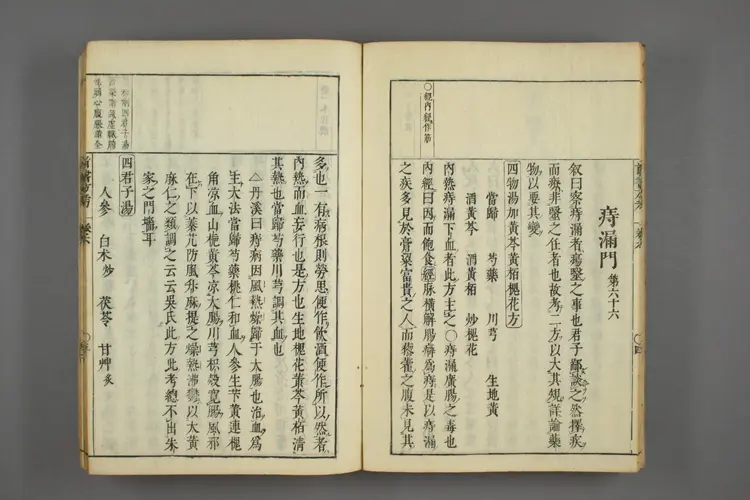 痔漏門 第六十六
敘曰痔漏者瘍醫之事也君子鄙談之然擇疾
而療非醫之任者也故考二方以大其規詳論藥
物以要其變
四物湯加黃芩黃栢槐花方
當歸 芍藥 川芎 生地黃
酒黃芩 酒黃栢 炒槐花
內熱痔漏下血者此方主之○痔漏廣腸之毒也
內經曰因而飽食經脉橫解腸癖為痔是以痔漏
之疾多見於膏粱富貴之人而藜藿之腹未見其
○經內經作筋
多也一有病根則勞思便作飲酒便作所以然者
內熱而血妄行也是方也生地槐花黃芩黃栢清
其熱也當歸芍藥川芎調其血也
丹溪曰痔病因風熱燥歸于大腸也治血為
主大法當歸芍藥桃仁和血人參生芐黃連槐
角涼血山梔黃芩涼大腸川芎枳殼寬腸風邪
在下以蓁艽防風升麻提之燥熱怫鬱以大黃
麻仁之類調之云云吳氏此方此考總不出朱
家之門墻耳
四君子湯
人參 白朮炒 茯苓 甘艸炙